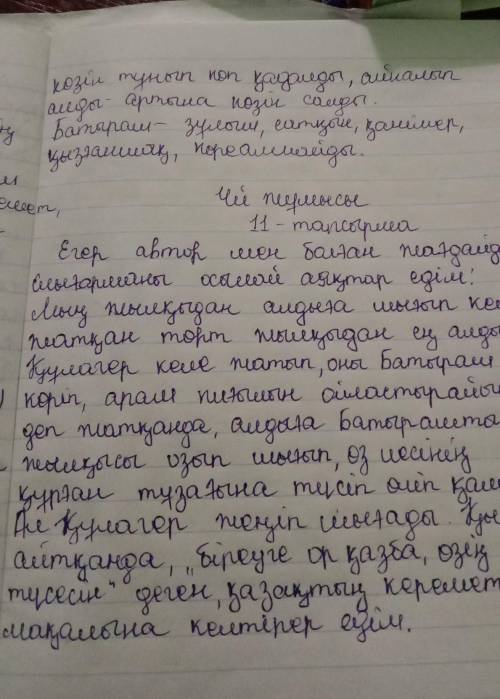 көзін тұнып көп қадалды, айналып
алды-артына көзін салды.
Батыраш- зұлым, сатқын, қанішер,
қызғаншақ, көреалмайды.
Үй жұмысы
11-тапсырма
Егер автор мен болған жағдайд
шығарманы осылай аяқтар едім:
Мың жылқыдан алдыға шығып ке
жатқан төрт жылқыдан ең алды
Құлагер келе жатып, оны Батыраш
көріп, арам пиғылын ойластырайын
деп жатқанда, алдыға Батыраштың
жылқысы озып шығып, өз иесінің
құрған тұзағына түсіп өліп қал
Ал Құлагер жеңіп шығады. Қы
айтқанда, "біреуге ор қазба, өзің
түсесің" деген, қазақтың керемет
мақалына келтірер едім.